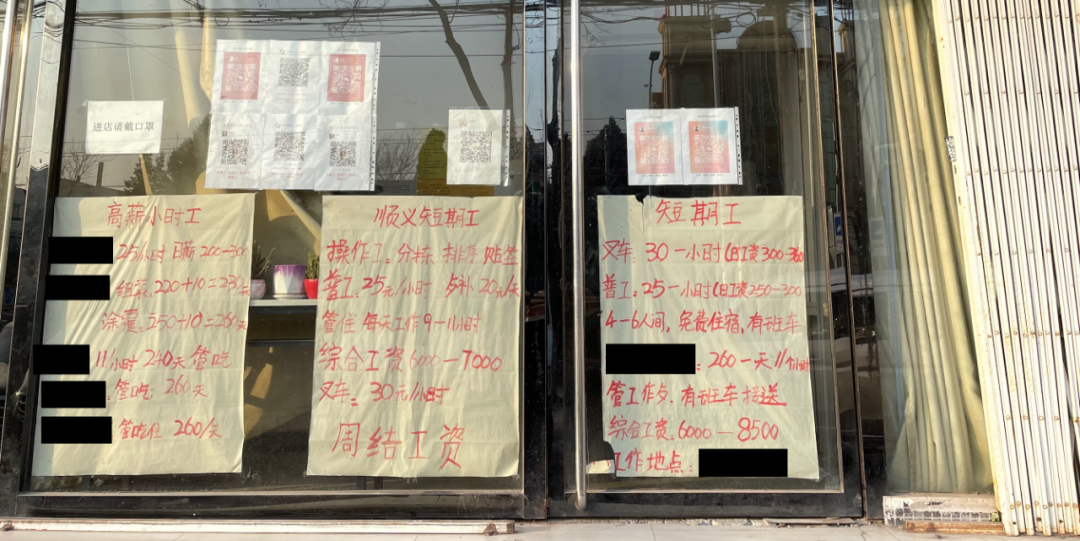 进店请戴口罩
高薪小时工
25/小时 日薪200-300
组装:220+10=230天
涂囊:250+10=260天
11小时 240天 管吃
管吃:260天
管吃住 260/天
顺义短期工
操作工:分拣、排序 贴签
普工:25元/小时 歺补20元/天
管住 每天工作9-11小时
综合工资6000-7000
叉车:30元/小时
周结工资
短期工
叉车:30一小时(日工资300-360
普工:25一小时(日工资250-300
4-6人间,免费住宿,有班车
:260一天11个小时
管工作歺、有班车接送
综合工资:6000-8500
工作地点: